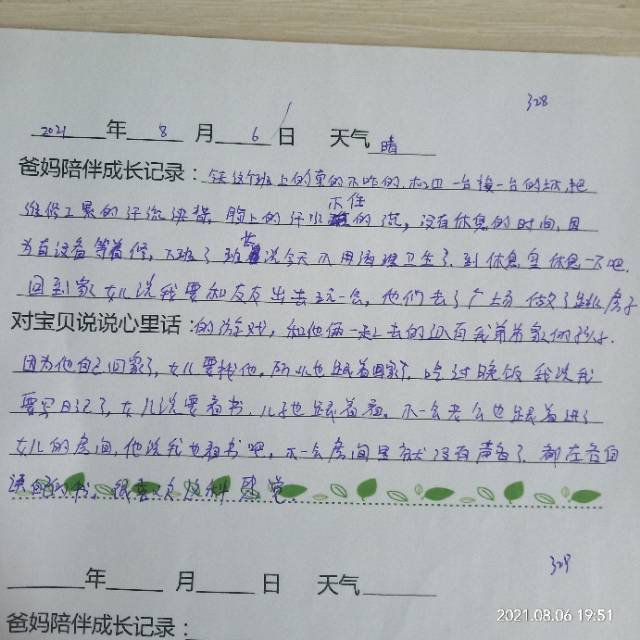 328
2021年8月6日 天气晴
爸妈陪伴成长记录：今天这个班上的真的不咋的,机四一台接一台的坏,把
不住
维修工累的汗流浃背,脸上的汗水的流,没有休息的时间,因
为有设备等着修,下班了班长说今天不用清理卫生了,到休息室休息一下吧.
回到家女儿说我要和友友出去玩一会,他们去了广场做了跳房子
对宝贝说说心里话：的游戏,和他俩一起去的还有我弟弟家的孩子.
因为他自己回家了,女儿要找他,所以也跟着回家了,吃过晚饭我说我
要写日记了,女儿说要看书,儿子也跟着看.不一会老公也跟着进了
女儿的房间,他说我也看书吧,不一会房间里就没有声音了,都在各自
读的书,很喜欢这种感觉.
329
年 月 日 天气
爸妈陪伴成长记录：
2021.08.06 19:51